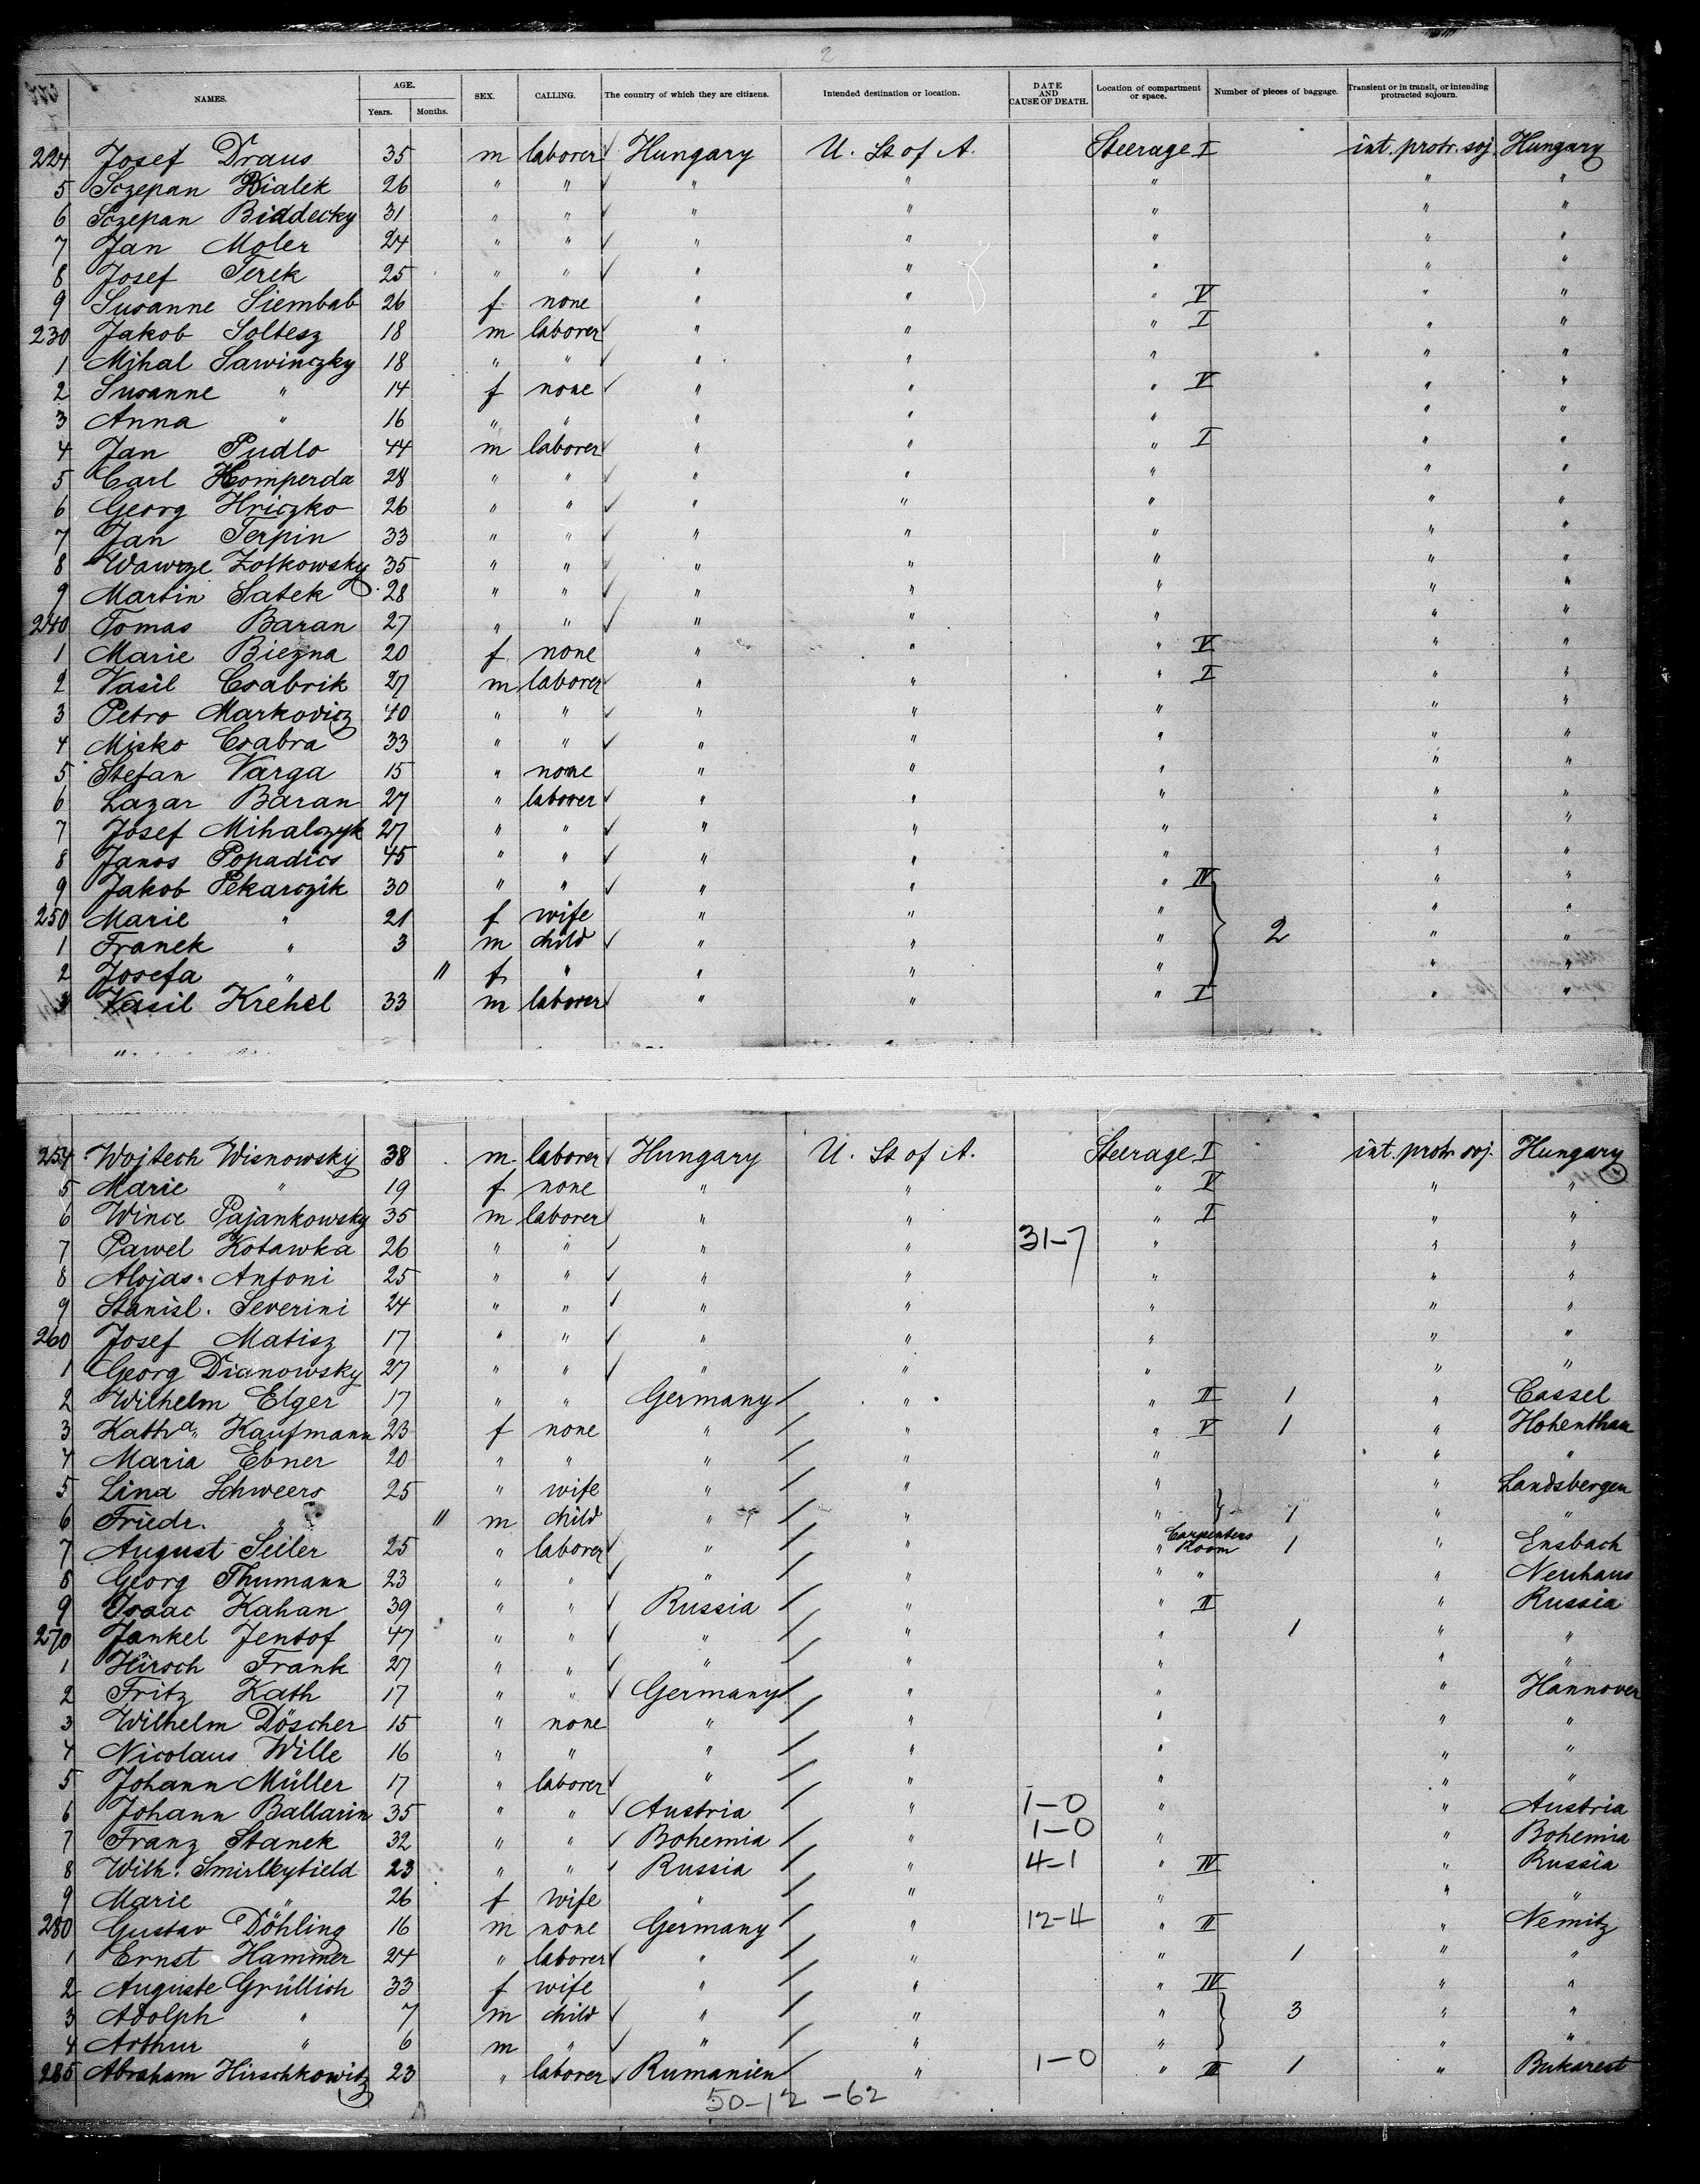 2
NAMES. AGE. Years. Months. SEX. CALLING. The country of which they are citizens. Intended destination or location. DATE AND CAUSE OF DEATH. Location of compartment or space. Number of pieces of baggage. Transient or in transit, or intending protracted sojourn.
224 Josef Draus 35 m laborer ✓ Hungary U. St of A. Steerage I int. protr. soj. Hungary
5 Sczepan Bialek 26 " " ✓ " " " " "
6 Sczepan Biddecky 31 " " ✓ " " " " "
7 Jan Moler 24 " " ✓ " " " " "
8 Josef Terek 25 " " ✓ " " " " "
9 Susanne Siembab 26 f none " " " V " "
230 Jakob Soltesz 18 m laborer ✓ " " " I " "
1 Mihal Sawinczky 18 " " ✓ " " " " "
2 Susanne " 14 f none ✓ " " " V " "
3 Anna " 16 " " " " " " "
4 Jan Pudlo 44 m laborer ✓ " " " I " "
5 Carl Homperda 28 " " ✓ " " " " "
6 Georg Hriczko 26 " " ✓ " " " " "
7 Jan Terpin 33 " " ✓ " " " " "
8 Wawrze Zolkowsky 35 " " ✓ " " " " "
9 Martin Satek 28 " " ✓ " " " " "
240 Tomas Baran 27 " " ✓ " " " " "
1 Marie Biezna 20 f none " " " V " "
2 Vasil Csabrik 27 m laborer ✓ " " " I " "
3 Petro Markovicz 40 " " ✓ " " " " "
4 Misko Csabra 33 " " ✓ " " " " "
5 Stefan Varga 15 " none " " " " "
6 Lazar Baran 27 " laborer ✓ " " " " "
7 Josef Mihalczyk 27 " " ✓ " " " " "
8 Janos Popadics 45 " " ✓ " " " " "
9 Jakob Pekarczik 30 " " ✓ " " " IV " "
250 Marie " 21 f wife " " " " "
1 Franek " 3 m child ✓ " " " 2 " "
2 Josefa " 11 f " " " " " "
3 Vasil Krehel 33 m laborer ✓ " " " I " "
254 Wojtech Wisnowsky 38 m laborer ✓ Hungary U. St of A. Steerage I int. protr. soj. Hungary
5 Marie " 19 f none " " " V " "
6 Wince Pajankowsky 35 m laborer ✓ " " " I " "
7 Pawel Kotawka 26 " " ✓ " " 31-7 " " "
8 Alojas Antoni 25 " " ✓ " " " " "
9 Stanisl. Severini 24 " " ✓ " " " " "
260 Josef Matisz 17 " " ✓ " " " " "
1 Georg Dianowsky 27 " " ✓ " " " " "
2 Wilhelm Elger 17 " " Germany / " " II 1 " Cassel
3 Katha. Kaufmann 23 f none " / " " V 1 " Hohenthan
4 Maria Ebner 20 " " " / " " " "
5 Lina Schweers 25 " wife " / " " " Landsbergen
6 Friedr. " 11 m child " / " " 1 " "
7 August Seiler 25 " laborer ✓ " / " " Carpenters Room 1 " Ensbach
8 Georg Thumann 23 " " ✓ " / " " " " Neuhaus
9 Isaac Kahan 39 " " ✓ Russia / " " II " Russia
270 Jankel Jentof 47 " " ✓ " / " " 1 " "
1 Hirsch Frank 27 " " ✓ " / " " " "
2 Fritz Kath 17 " " ✓ Germany / " " " Hannover
3 Wilhelm Döscher 15 " none " / " " " "
4 Nicolaus Wille 16 " " " / " " " "
5 Johann Müller 17 " laborer ✓ " / " " " "
6 Johann Ballarin 35 " " ✓ Austria / " 1-0 " " Austria
7 Franz Stanek 32 " " ✓ Bohemia / " 1-0 " " Bohemia
8 Wilh. Smirlkyfield 23 " " ✓ Russia / " 4-1 " IV " Russia
9 Marie " 26 f wife " / " " " "
280 Gustav Döhling 16 m none Germany / " 12-4 " II " Nemitz
1 Ernst Hammer 24 " laborer ✓ " / " " 1 " "
2 Auguste Grüllich 33 f wife " / " " IV " "
3 Adolph " 7 m child ✓ " / " " 3 " "
4 Arthur " 6 m " ✓ " / " " " "
285 Abraham Hirschkowitz 23 " laborer ✓ Rumanien / " 1-0 " III 1 " Bukarest
50-12-62